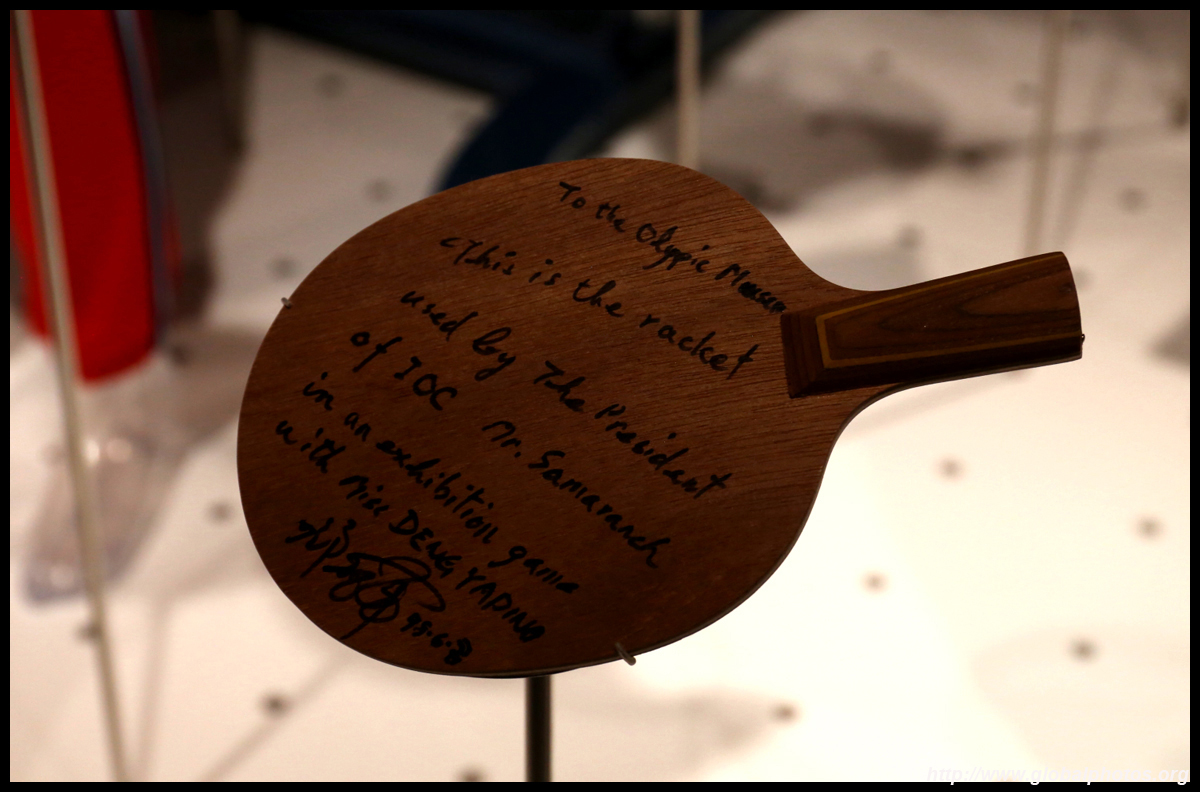 To the Olyppic Museum
This is the racket
used by The President
of IOC Mr. Samaranch
in an exhibition game
with Miss DENG YAPING
http://www.
.org